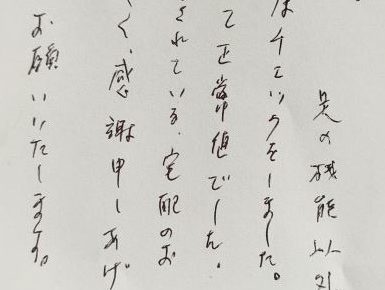 の機能以外
はチェックをしました。
て正常値でした。
されている、宅配のお
く、感謝申しあげ
お願いいたします。